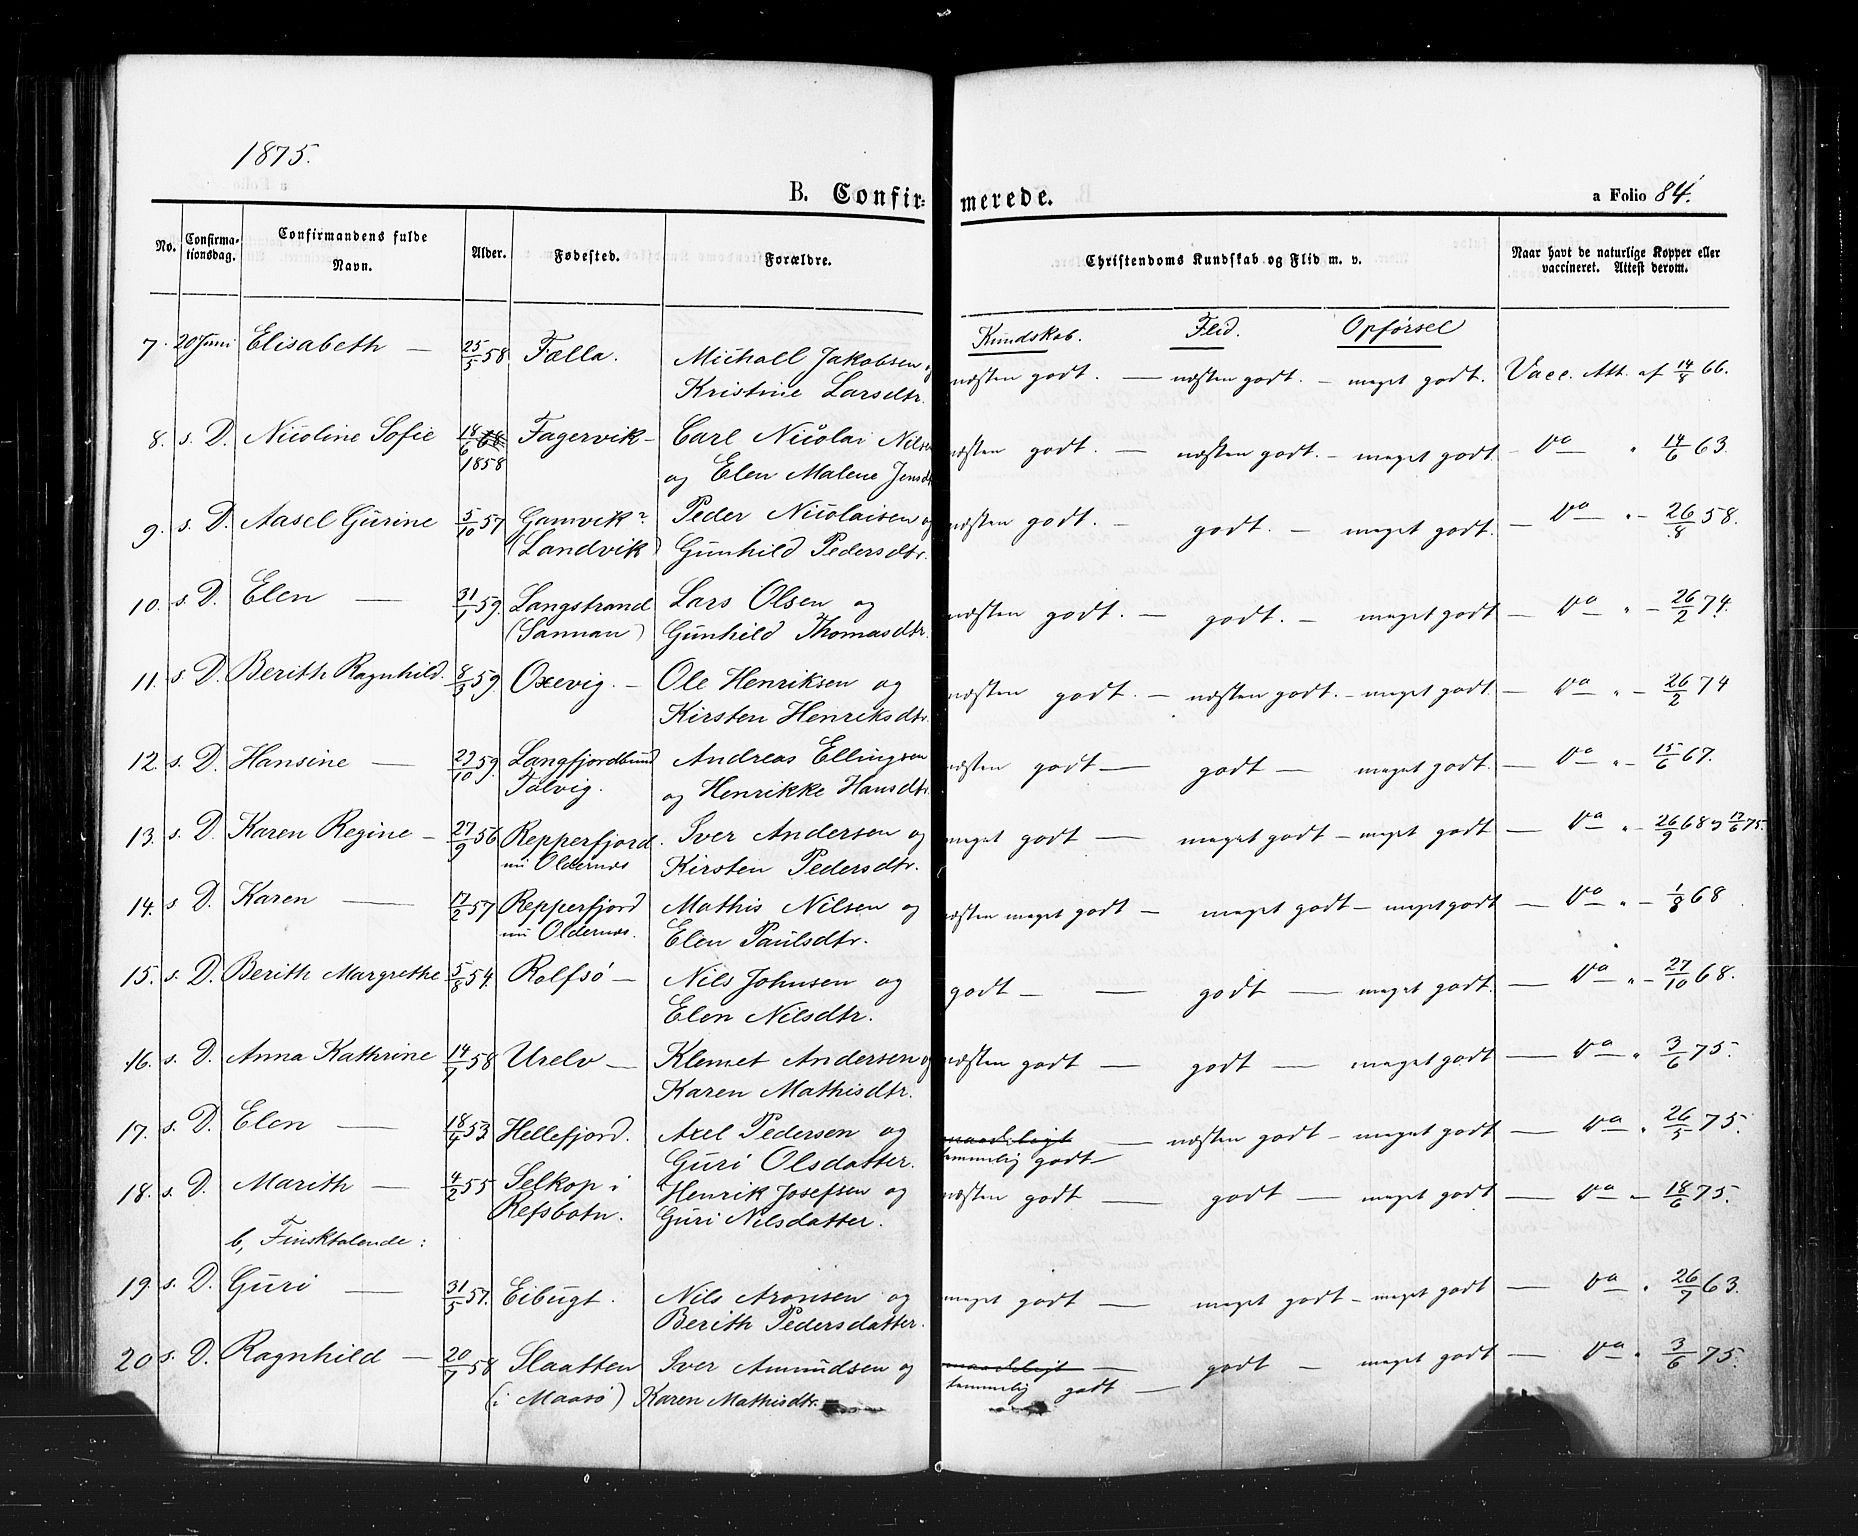 1875.
B. Confir= merede. a Folio 84.
No. Confirma-tionsdag. Confirmandens fulde Navn. Alder. Fødested. Forældre. Christendoms Kundskab og Flid m. v. Naar havt de naturlige Kopper eller vaccineret. Attest derom.
Kundskab. Flid. Opførsel
7. 20 Juni Elisabeth — 25/5 58 Fælla. Michall Jakobsen og næsten godt. — næsten godt. — meget godt. Vacc. Att. af 14/8 66.
Kristine Larsdtr.
8. s. D. Nicoline Sofie 18/6 68 Fagervik — Carl Nicolai Nilsen næsten godt. — næsten godt. — meget godt. — Do " 14/6 63.
1858 og Elen Malene Jensdtr
9. s. D. Aasel Gurine 5/10 57 Gamvik? Peder Nicolaisen og næsten godt. — godt. — meget godt. — Do " 26/8 58.
(Landvik) Gunhild Pedersdtr.
10. s. D. Elen — 31/1 59. Langstrand Lars Olsen og næsten godt. — godt. — meget godt — Do " — 26/2 74.
(Sannan) Gunhild Thomasdtr.
11. s. D. Berith Ragnhild. 8/3 59 Oxevig. — Ole Henriksen og næsten godt. — næsten godt. — meget godt. — Do " — 26/2 74
Kirsten Henriksdtr.
12. s. D. Hansine — 29/10 59. Langfjordbund Andreas Ellingsen næsten godt — godt — meget godt. — Do " — 15/6 67.
Talvig. og Henrikke Hansdtr.
13. s. D. Karen Regine — 27/9 56 Repperfjord. Iver Andersen og meget godt — meget godt — meget godt — Do " — 26/9 68 og 17/6 75.
nu Oldernæs Kirsten Pedersdtr.
14. s D. Karen — 17/2 57 Repperfjord Mathis Nilsen og næsten meget godt — meget godt — meget godt — Do " — 1/8 68
nu Oldernæs. Elen Paulsdtr.
15. s. D. Berith Margrethe 5/8 54. Rolfsø — Nils Johnsen og godt — — godt — meget godt. — Do " — 27/10 68.
Elen Nilsdtr.
16. s. D. Anna Kathrine 14/7 58 Urelv — Klemet Andersen og næsten godt — godt — meget godt — Do " 3/6 75.
Karen Mathisdtr.
17. s. D. Elen — 18/4 53 Hellefjord. Axel Pedersen og maadeligt — næsten godt — meget godt — Do " 26/5 75.
Guri Olsdatter. temmelig godt —
18. s. D. Marith — 4/2 55 Selkop i Henrik Josefsen og næsten godt — godt — meget godt — Do " 18/6 75.
Refsbotn. Guri Nilsdatter.
b, Finsktalende:
19. s. D. Guri — 31/5 57. Eibugt. Nils Aronsen og meget godt — meget godt — meget godt — Do " 26/7 63.
Berith Pedersdatter.
20 s. D. Ragnhild — 20/7 58 Slaatten Iver Amundsen og maadeligt — godt — meget godt — Do " 3/6 75.
(i Maasø) Karen Mathisdtr. temmelig godt —